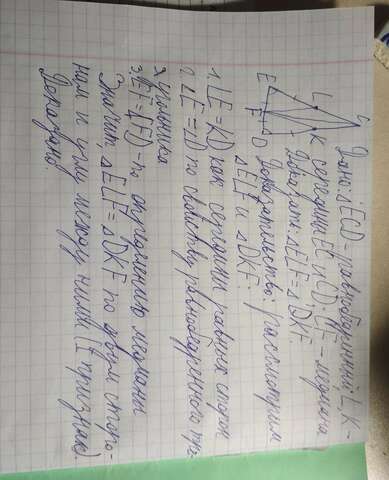 Дано: △ECD - равнобедренный. L, K -
середины EC и CD. EF - медиана
Доказать: △ELF = △DKF.
Доказательство: рассмотрим
△ELF и △DKF:
1. LE = KD как середины равных сторон
2. ∠E = ∠D по свойству равнобедренного тре-
угольника
3. EF = FD - по определению медианы
Значит, △ELF = △DKF по двум сторо-
нам и углу между ними (I признак)
Доказано.
C
L
K
E
F
D